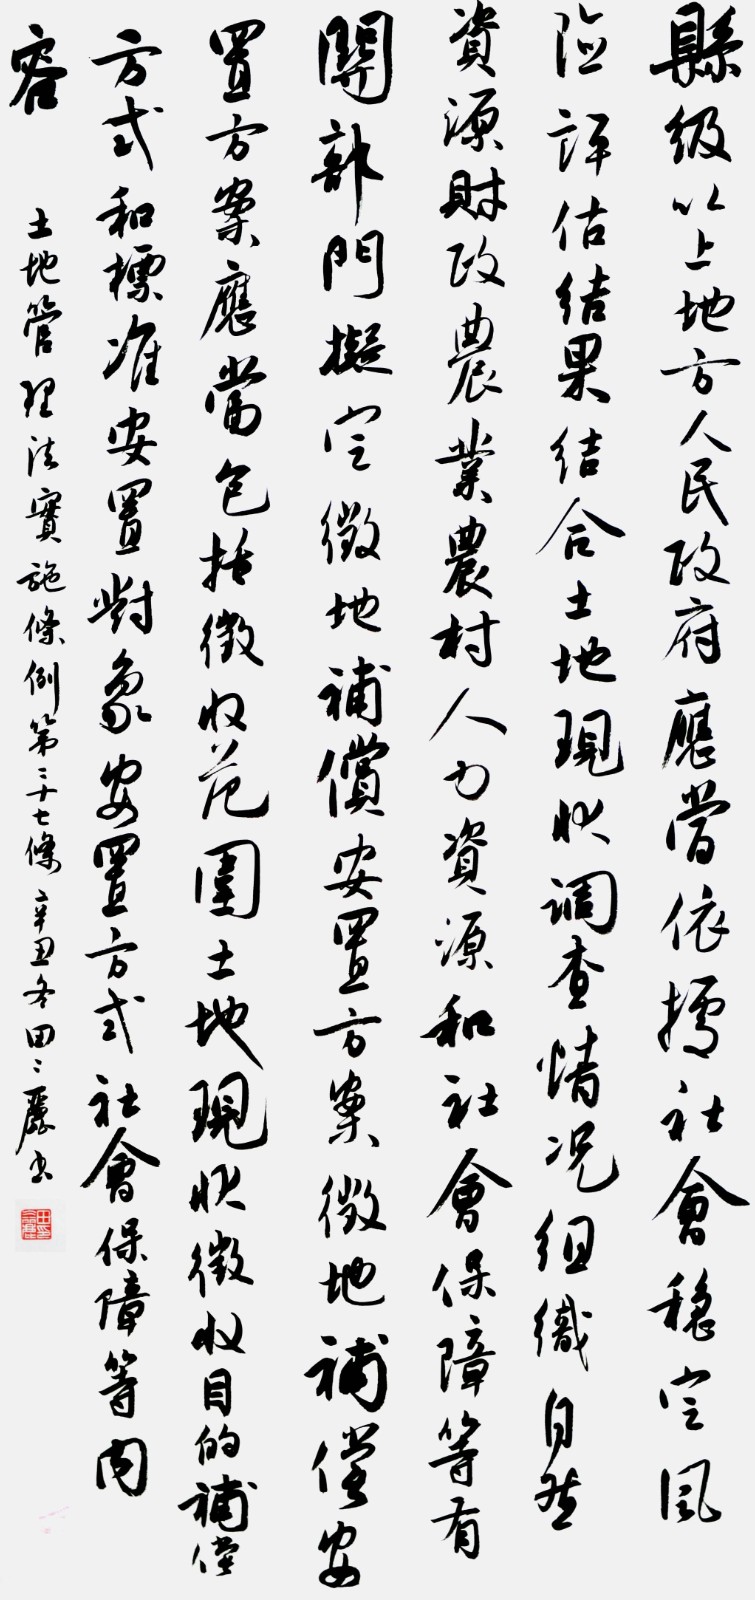 縣级以上地方人民政府應當依據社會穩定風
险評估結果結合土地現狀调查情况組織自然
資源財政農業農村人力資源和社會保障等有
關部門擬定徵地補償安置方案徵地補償安
置方案應當包括徵收范圍土地現狀徵收目的補償
方式和標准安置對象安置方式社會保障等内
容
土地管理法實施條例第二十七條 辛丑冬田〻麗书